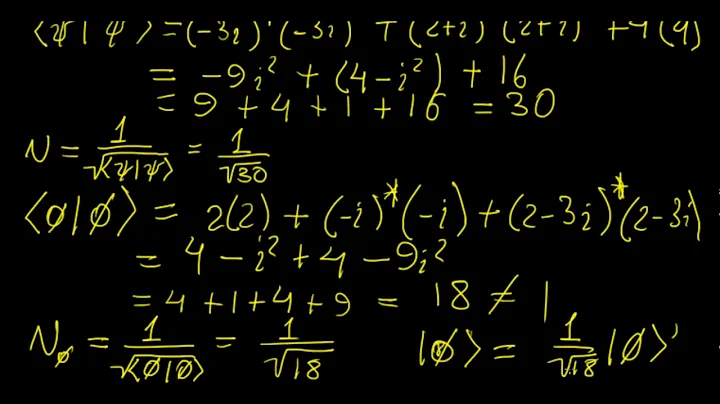 ⟨ψ|ψ⟩ = (-3i)*(-3i) + (2+i)*(2+i) + 4(4)
= -9i² + (4-i²) + 16
= 9 + 4 + 1 + 16 = 30
N = 1/√⟨ψ|ψ⟩ = 1/√30
⟨ø|ø⟩ = 2(2) + (-i)*(-i) + (2-3i)*(2-3i)
= 4 - i² + 4 - 9i²
= 4 + 1 + 4 + 9 = 18 ≠ 1
Nø = 1/√⟨ø|ø⟩ = 1/√18 |ø⟩ = 1/√18 |ø⟩'